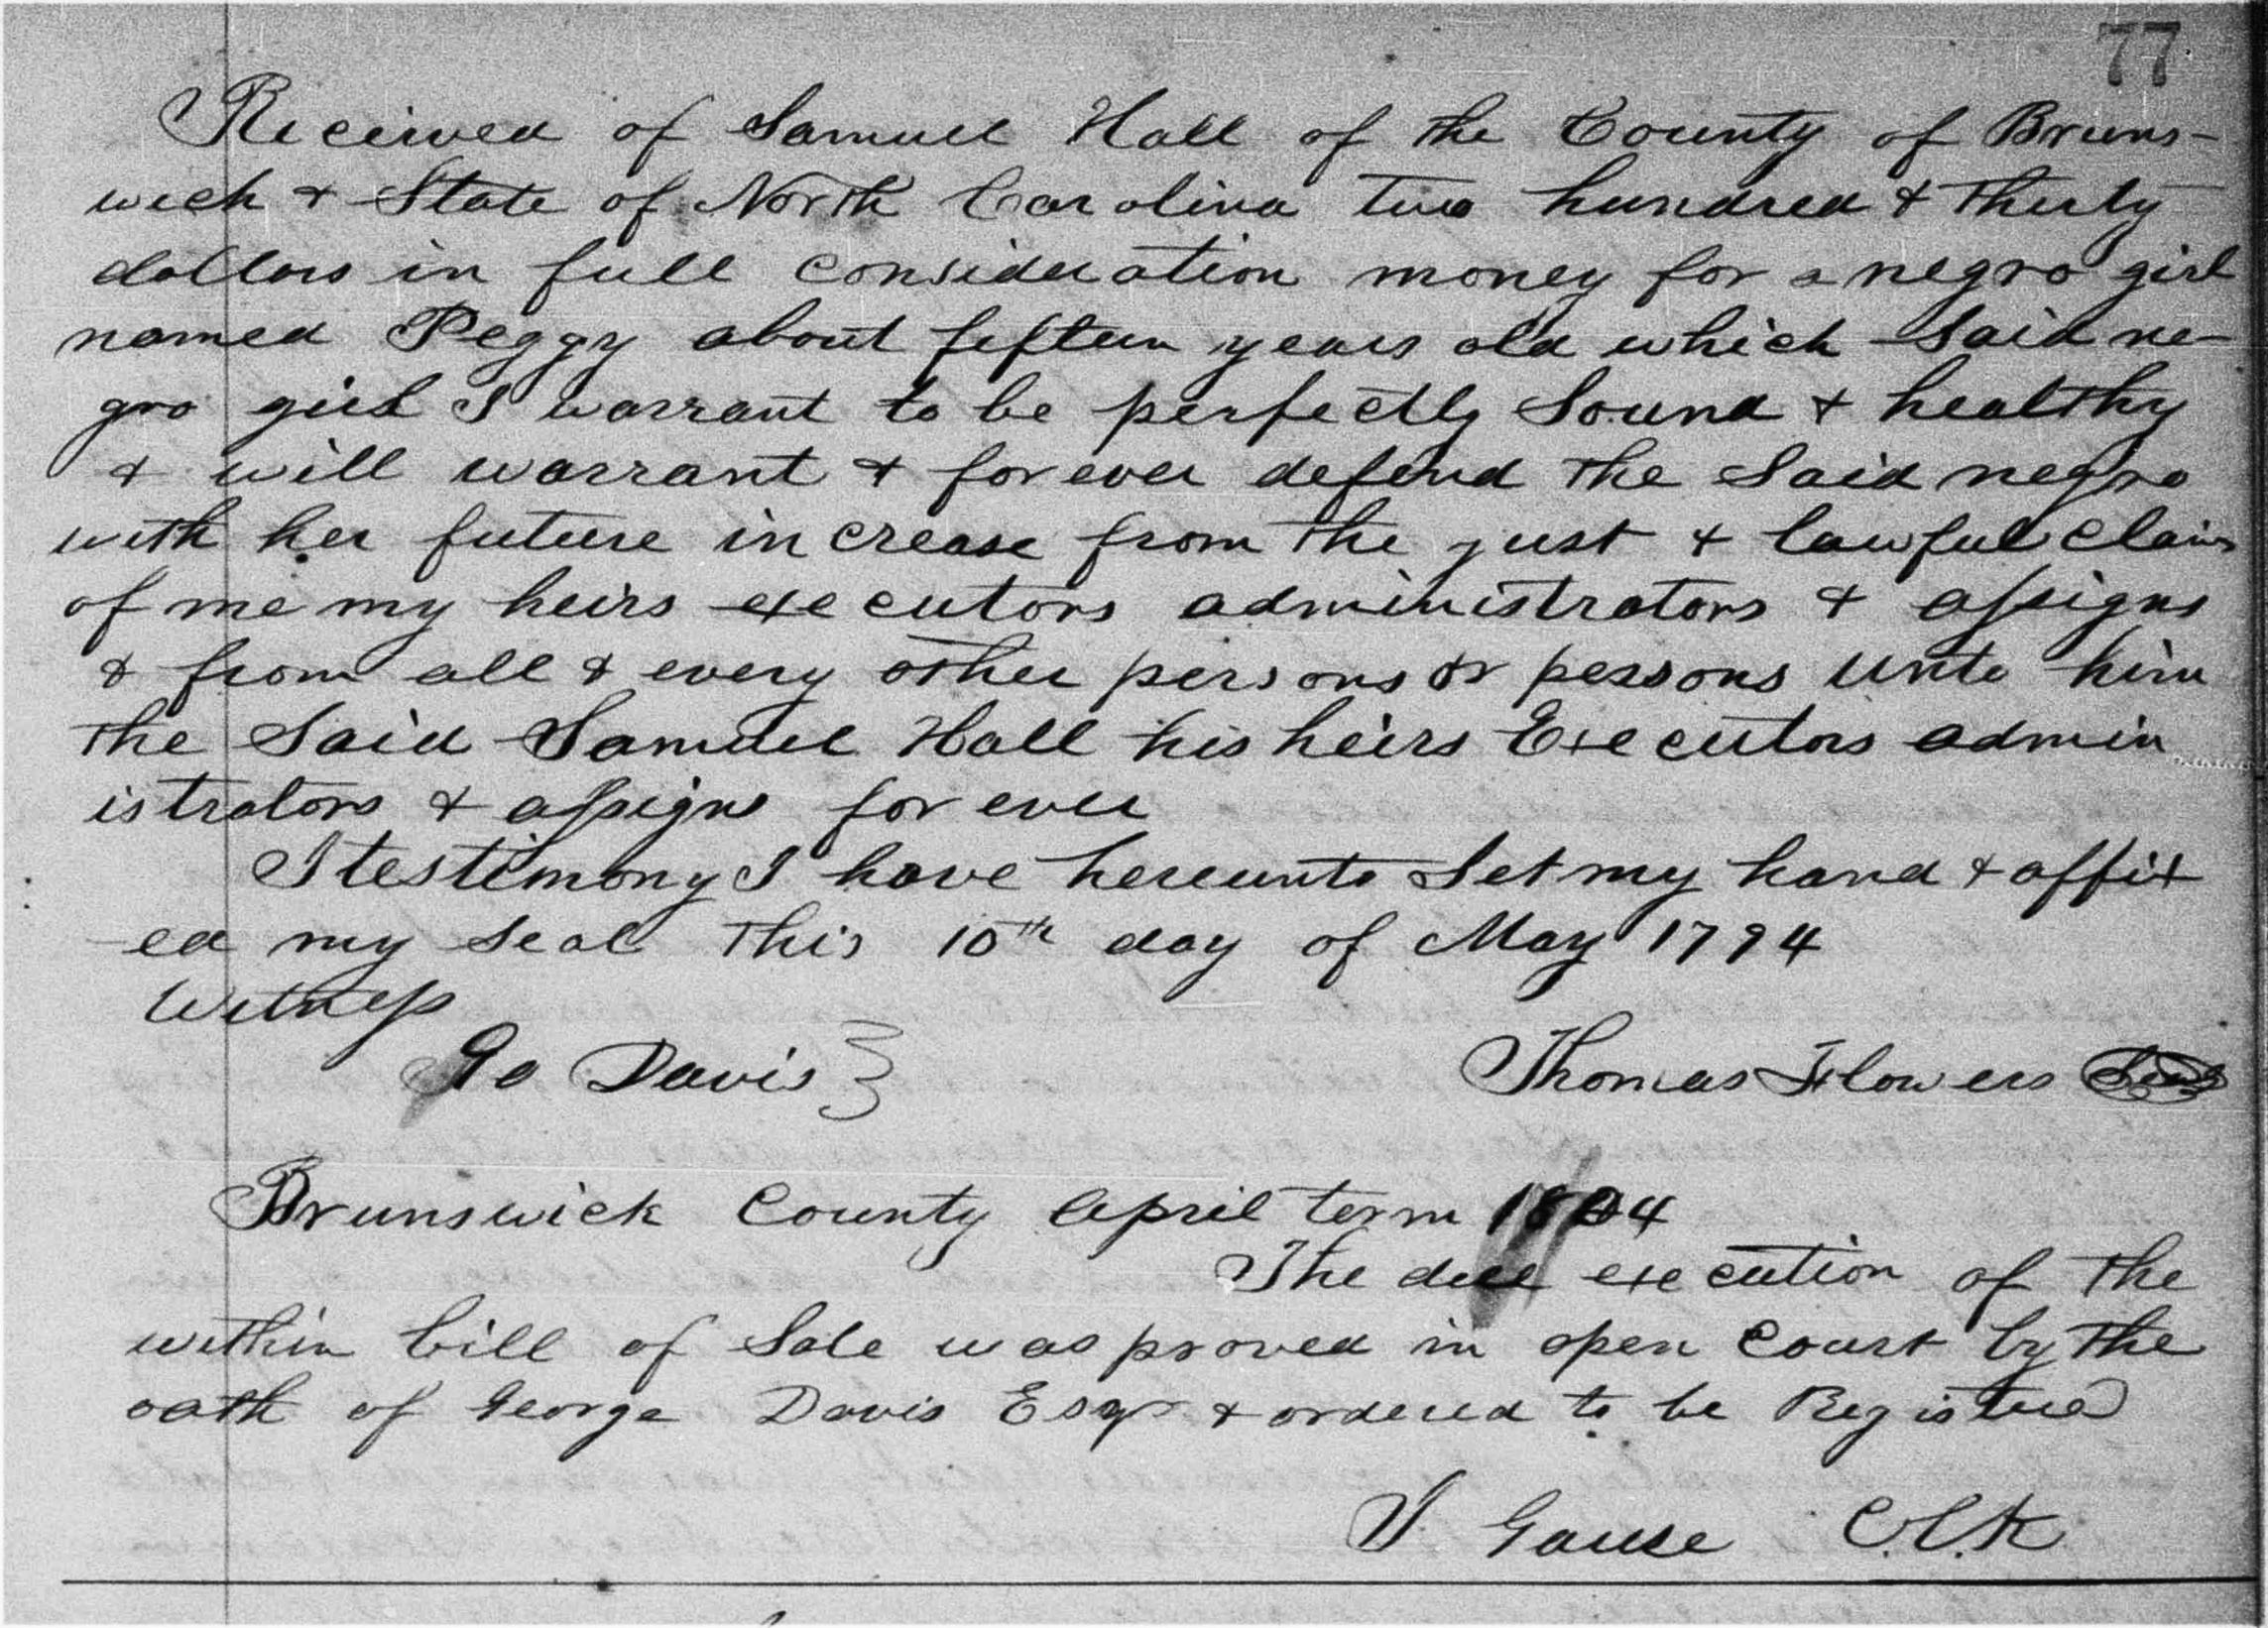 77
Received of Samuel Hall of the County of Bruns-
wick & State of North Carolina two hundred & thirty
dollars in full consideration money for a negro girl
named Peggy about fifteen years old which said ne-
gro girl I warrant to be perfectly Sound & healthy
& will warrant & for ever defend the said negro
with her future increase from the just & lawful claim
of me my heirs executors administrators & assigns
& from all & every other persons or persons unto him
the Said Samuel Hall his heirs Executors admin
istrators & assigns for ever
I testimony I have hereunto Set my hand & affix
ed my seal this 10th day of May 1794
Witness
Go Davis
Thomas Flowers Seal
Brunswick County April term 1804
The due execution of the
within bill of Sale was proved in open Court by the
oath of George Davis Esqr & ordered to be Registered
Gause C.C.K